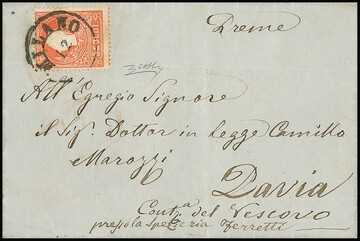 MILANO
12
Preme
All' Egregio Signore
il Sig.r Dottor in Legge Camillo
Marozzi
Pavia
Cont.a del Vescovo
presso la Spezieria Ferretti